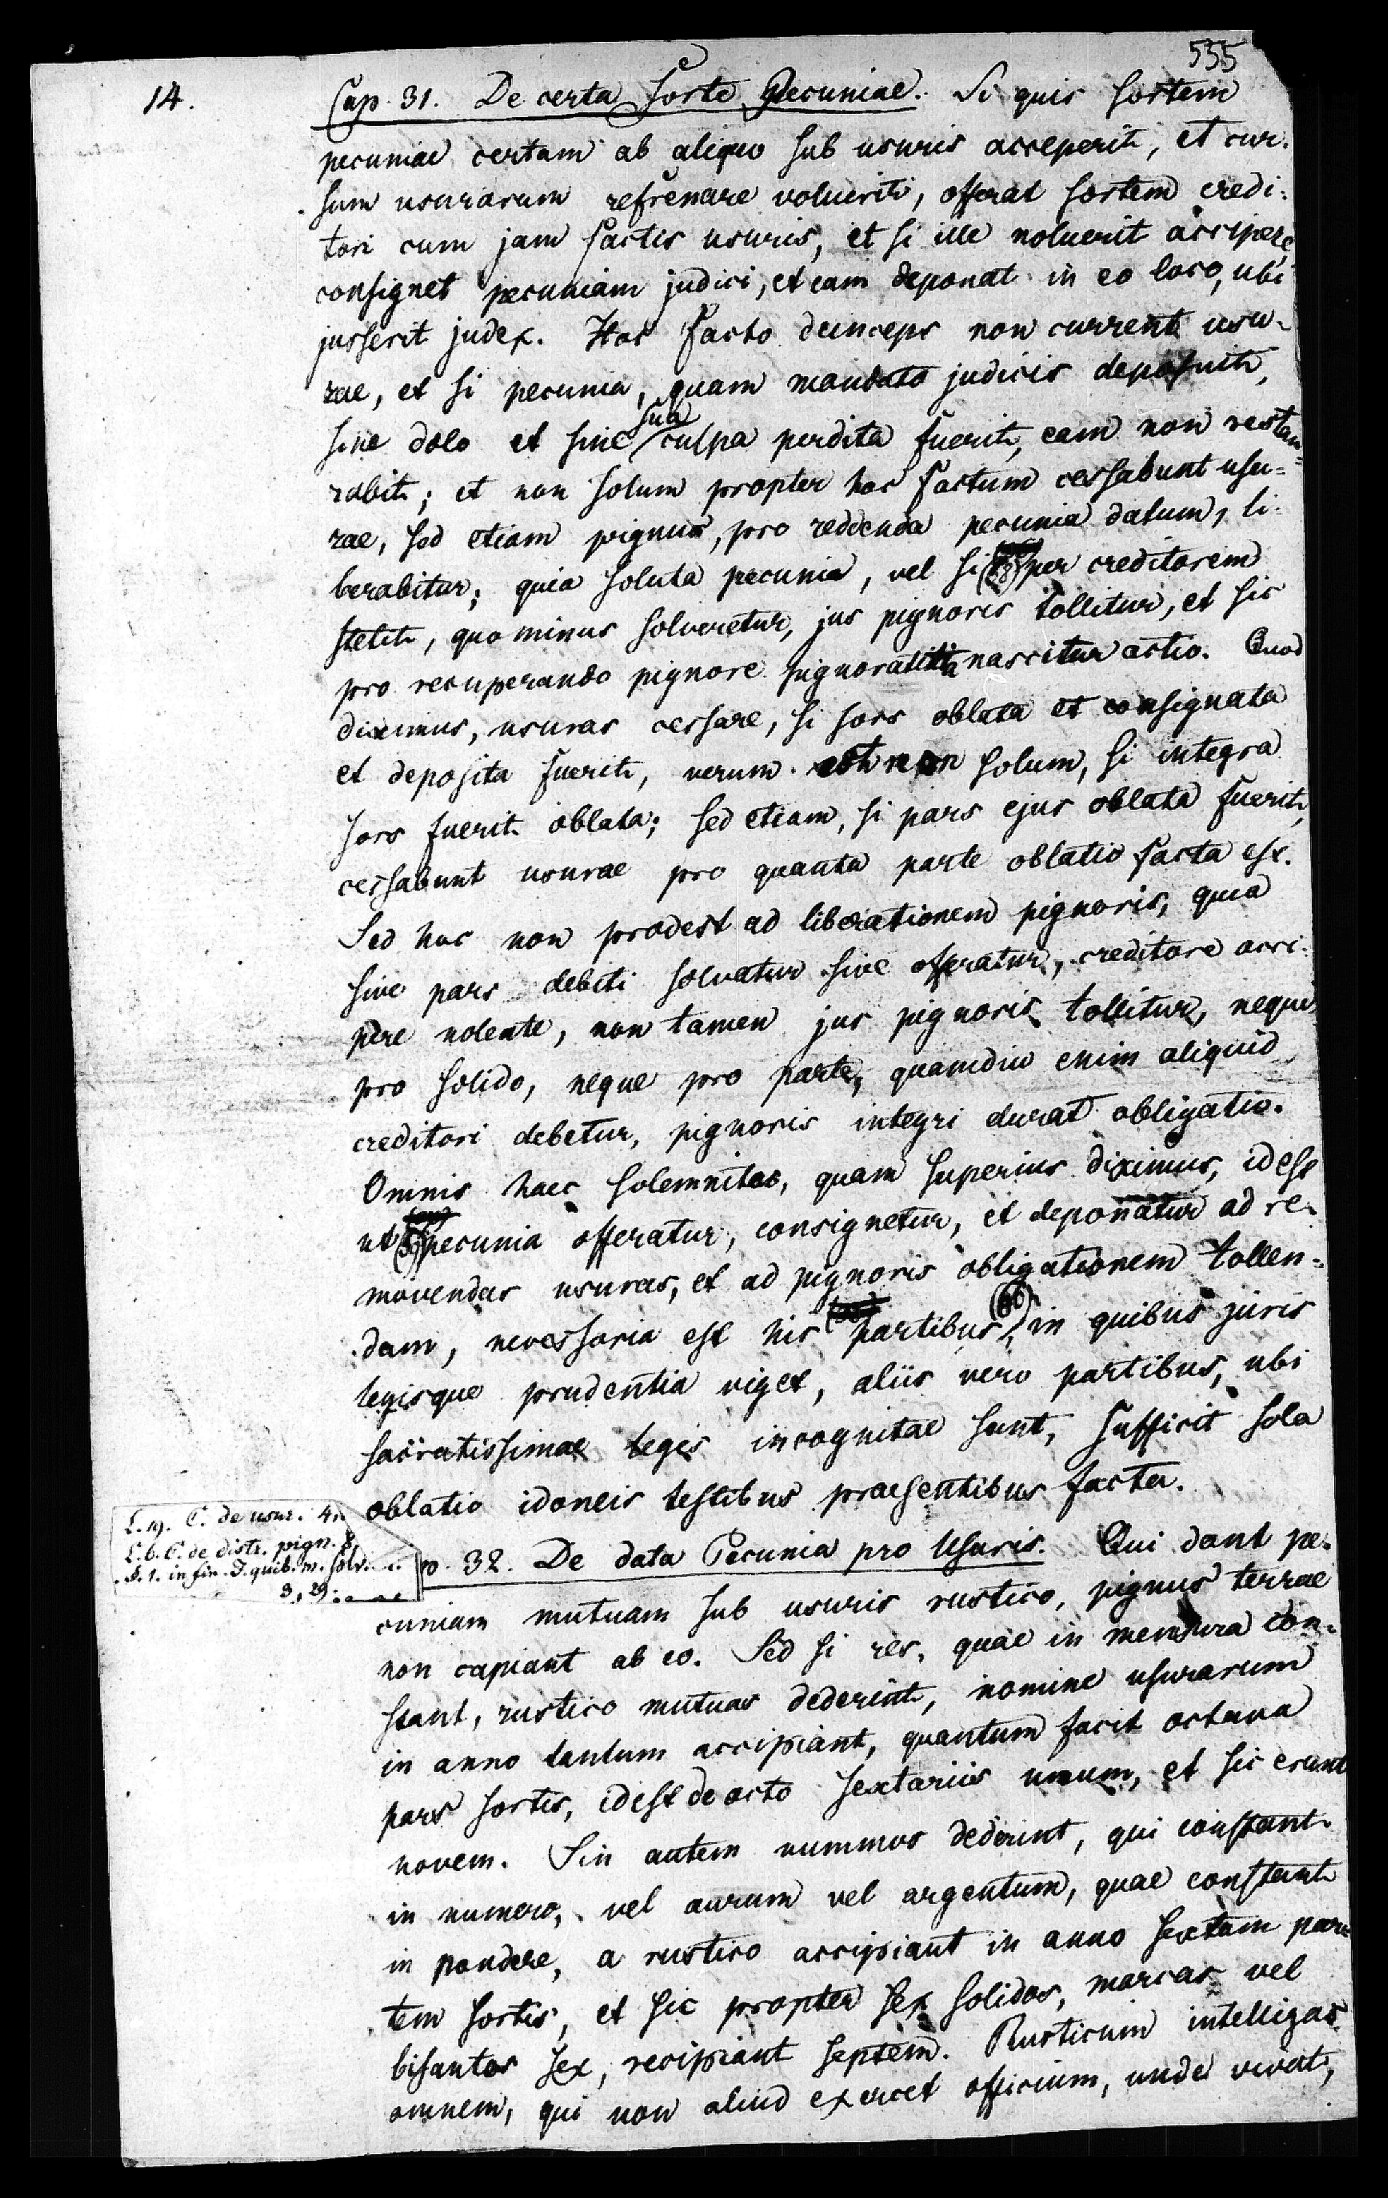 535
14.
Cap. 31. De certa Sorte Pecuniae. Si quis sortem
pecuniae certam ab aliquo sub usuris acceperit, et cur-
sum usurarum refrenare voluerit, offerat sortem credi-
tori cum jam factis usuris, et si ille noluerit accipere,
consignet pecuniam judici, et eam deponat in eo loco, ubi
jusserit judex. Hoc facto deinceps non current usu-
rae, et si pecunia, quam mandato judicis deposuit,
sine dolo et sine sua culpa perdita fuerit, eam non restau-
rabit; et non solum propter hoc factum cessabunt usu-
rae, sed etiam pignus, pro reddenda pecunia datum, li-
berabitur; quia soluta pecunia, vel si per creditorem
stetit, quo minus solveretur, jus pignoris tollitur, et sic
pro recuperando pignore pignoratitia nascitur actio. Quod
diximus, usuras cessare, si sors oblata et consignata
et deposita fuerit, verum est non solum, si integra
sors fuerit oblata; sed etiam, si pars ejus oblata fuerit,
cessabunt usurae pro quanta parte oblatio facta est.
Sed hoc non prodest ad liberationem pignoris, quia
sive pars debiti solvatur sive offeratur, creditore acci-
pere nolente, non tamen jus pignoris tollitur, neque
pro solido, neque pro parte, quamdiu enim aliquid
creditori debetur, pignoris integri durat obligatio.
Omnis haec solemnitas, quam superius diximus, id est
ut pecunia offeratur, consignetur, et deponatur ad re-
movendas usuras, et ad pignoris obligationem tollen-
dam, necessaria est his partibus, in quibus juris
legisque prudentia viget, aliis vero partibus, ubi
sacratissimae leges incognitae sunt, sufficit sola
oblatio idoneis testibus praesentibus facta.
L. 19. C. de usur. 4.
L. 6. C. de distr. pign. 8.
§. 1. in fin. J. quib. m. solv.
3, 29.
p. 32. De data Pecunia pro Usuris. Qui dant pe-
cuniam mutuam sub usuris rustico, pignus terrae
non capiant ab eo. Sed si res, quae in mensura con-
stant, rustico mutuas dederint, nomine usurarum
in anno tantum accipiant, quantum facit octava
pars sortis, id est de octo sextariis unum, et sic erunt
novem. Sin autem nummos dederint, qui constant
in numero, vel aurum vel argentum, quae constant
in pondere, a rustico accipiant in anno sextam par-
tem sortis, et sic propter sex solidos, marcas vel
bisantos sex, recipiant septem. Rusticum intelligas
omnem, qui non aliud exercet officium, unde vivat,